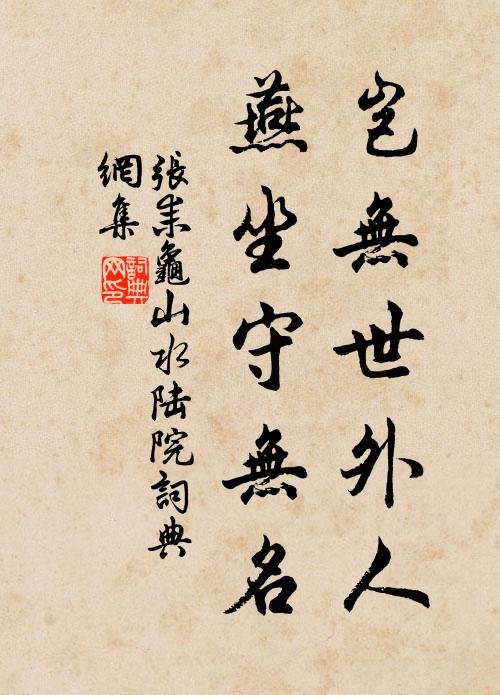 豈無世外人
燕坐守無名
張耒龜山水陆院詞典
網集
詞典
网印